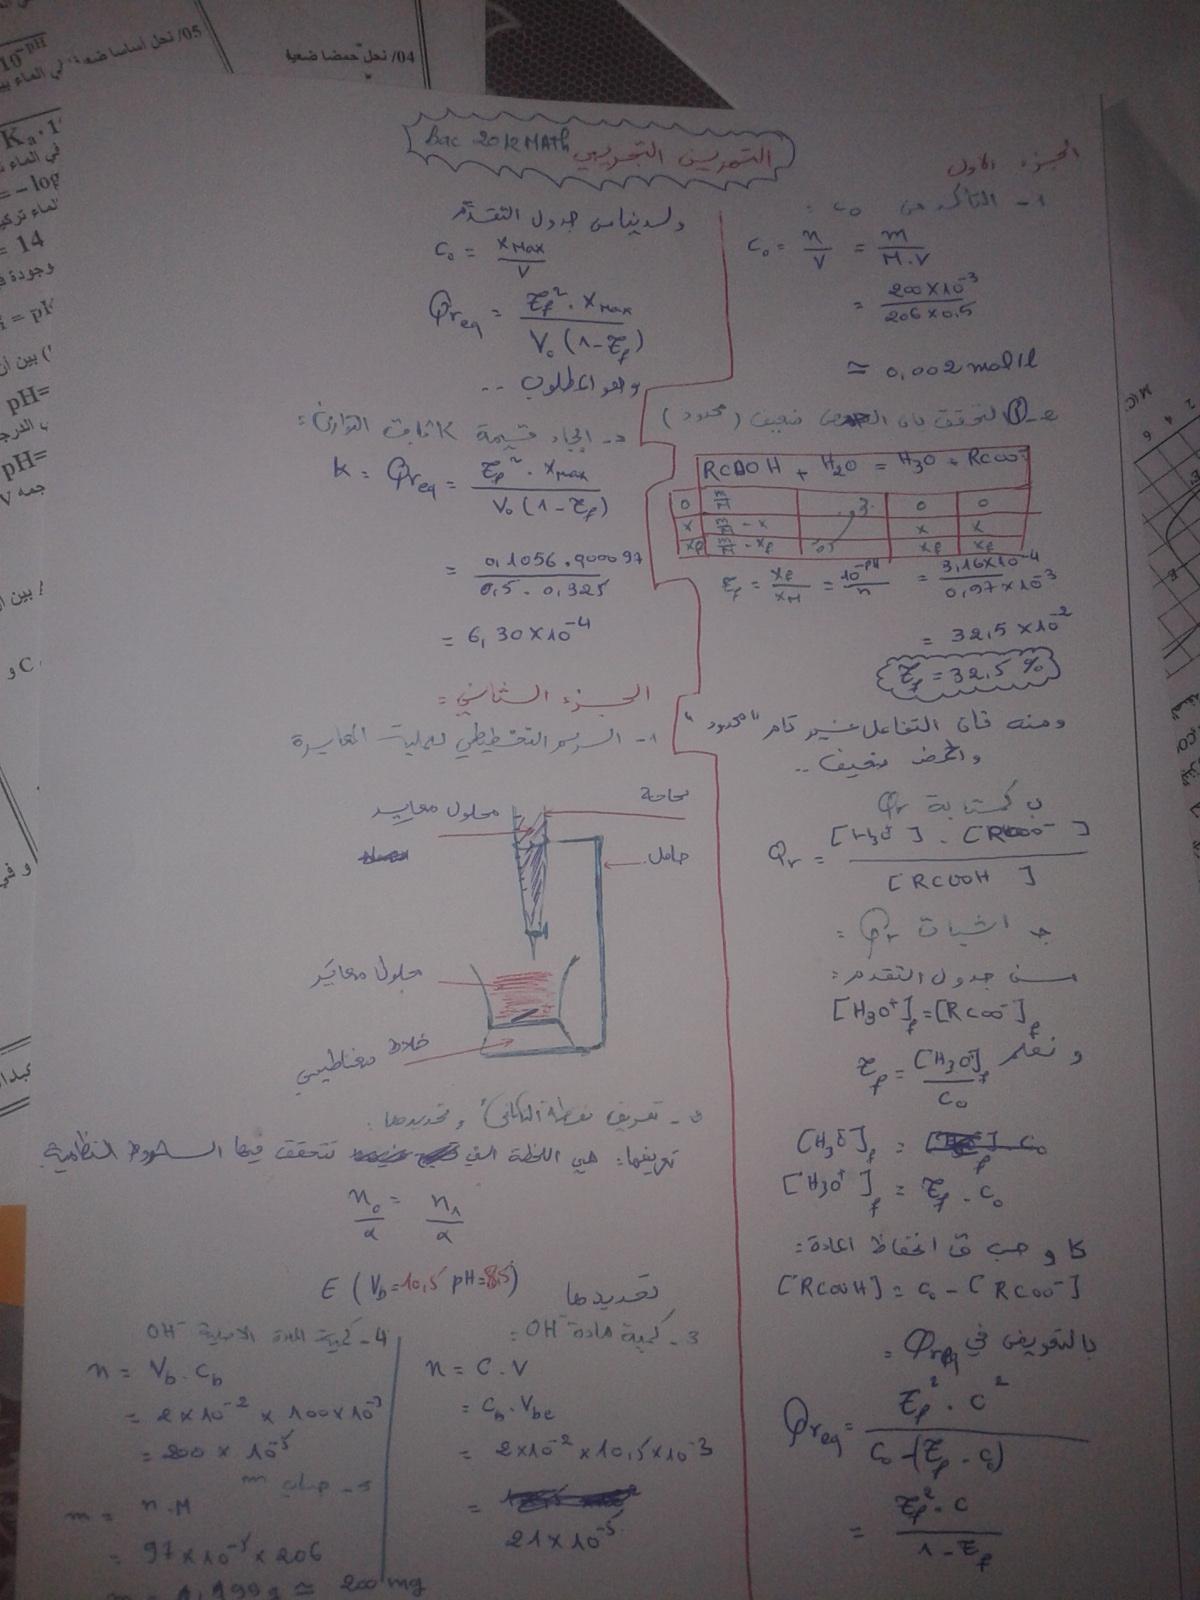 05/ نحل أساسا
04/ نحل حمضا ضعيفا
10⁻ᵖᴴ
= -log
= 14
pH=
pH=
Bac 2012 MATH التمرين التجريبي
الجزء الأول
1- التأكد من C₀ :
C₀ = n/V = m/M.V
= 200×10⁻³/206×0,5
≃ 0,002 mol/l
2- أ التحقق بأن الحمض ضعيف (محدود)
RCOOH + H₂O = H₃O + RCOO⁻
0 m/M 0 0
x m/M - x x x
xf m/M - xf xf xf
τf = xf/xM = 10⁻ᵖᴴ/n = 3,16×10⁻⁴/0,97×10⁻³
= 32,5 ×10⁻²
τf = 32,5 %
ومنه فان التفاعل غير تام "محدود"
والحمض ضعيف ..
ب كتابة Qr
Qr = [H₃O⁺] . [RCOO⁻]/[RCOOH]
جـ اثبات Qr :
من جدول التقدم :
[H₃O⁺]f = [RCOO⁻]f
و نعلم τf = [H₃O⁺]f/C₀
[H₃O⁺]f =
[H₃O⁺]f = τf . C₀
انحفاظ المادة :
[RCOOH] = C₀ - [RCOO⁻]
بالتعويض في Qreq :
Qreq = τf² . C²/C₀ - (τf . C₀)
= τf² . C/1 - τf
ولدينا من جدول التقدم
C₀ = xMax/V
Qreq = τf² . xMax/V₀ (1-τf)
وهو المطلوب ..
د- ايجاد قيمة K ثابت التوازن :
K = Qreq = τf² . xMax/V₀ (1-τf)
= 0,1056 . 0,00097/0,5 . 0,325
= 6,30×10⁻⁴
الجزء الثاني :
1- الرسم التخطيطي لعملية المعايرة
سحاحة
محلول معاير
حامل
محلول معاير
خلاط مغناطيسي
2- تعريف نقطة التكافؤ وتحديدها :
تعريفها : هي اللحظة التي تتحقق فيها الشروط النظامية
n₀/α = n₁/α
تحديدها E (Vb=10,5 pH=8,5)
3- كمية مادة OH⁻ :
n = C . V
= Cb . Vbe
= 2×10⁻² × 10,5×10⁻³
=
21×10⁻⁵
4- كمية المادة الاصلية OH⁻
n = Vb . Cb
= 2×10⁻² × 100×10⁻³
= 200 × 10⁻⁵
5- حساب m
m = n.M
= 97×10⁻⁵×206
≃ 200 mg